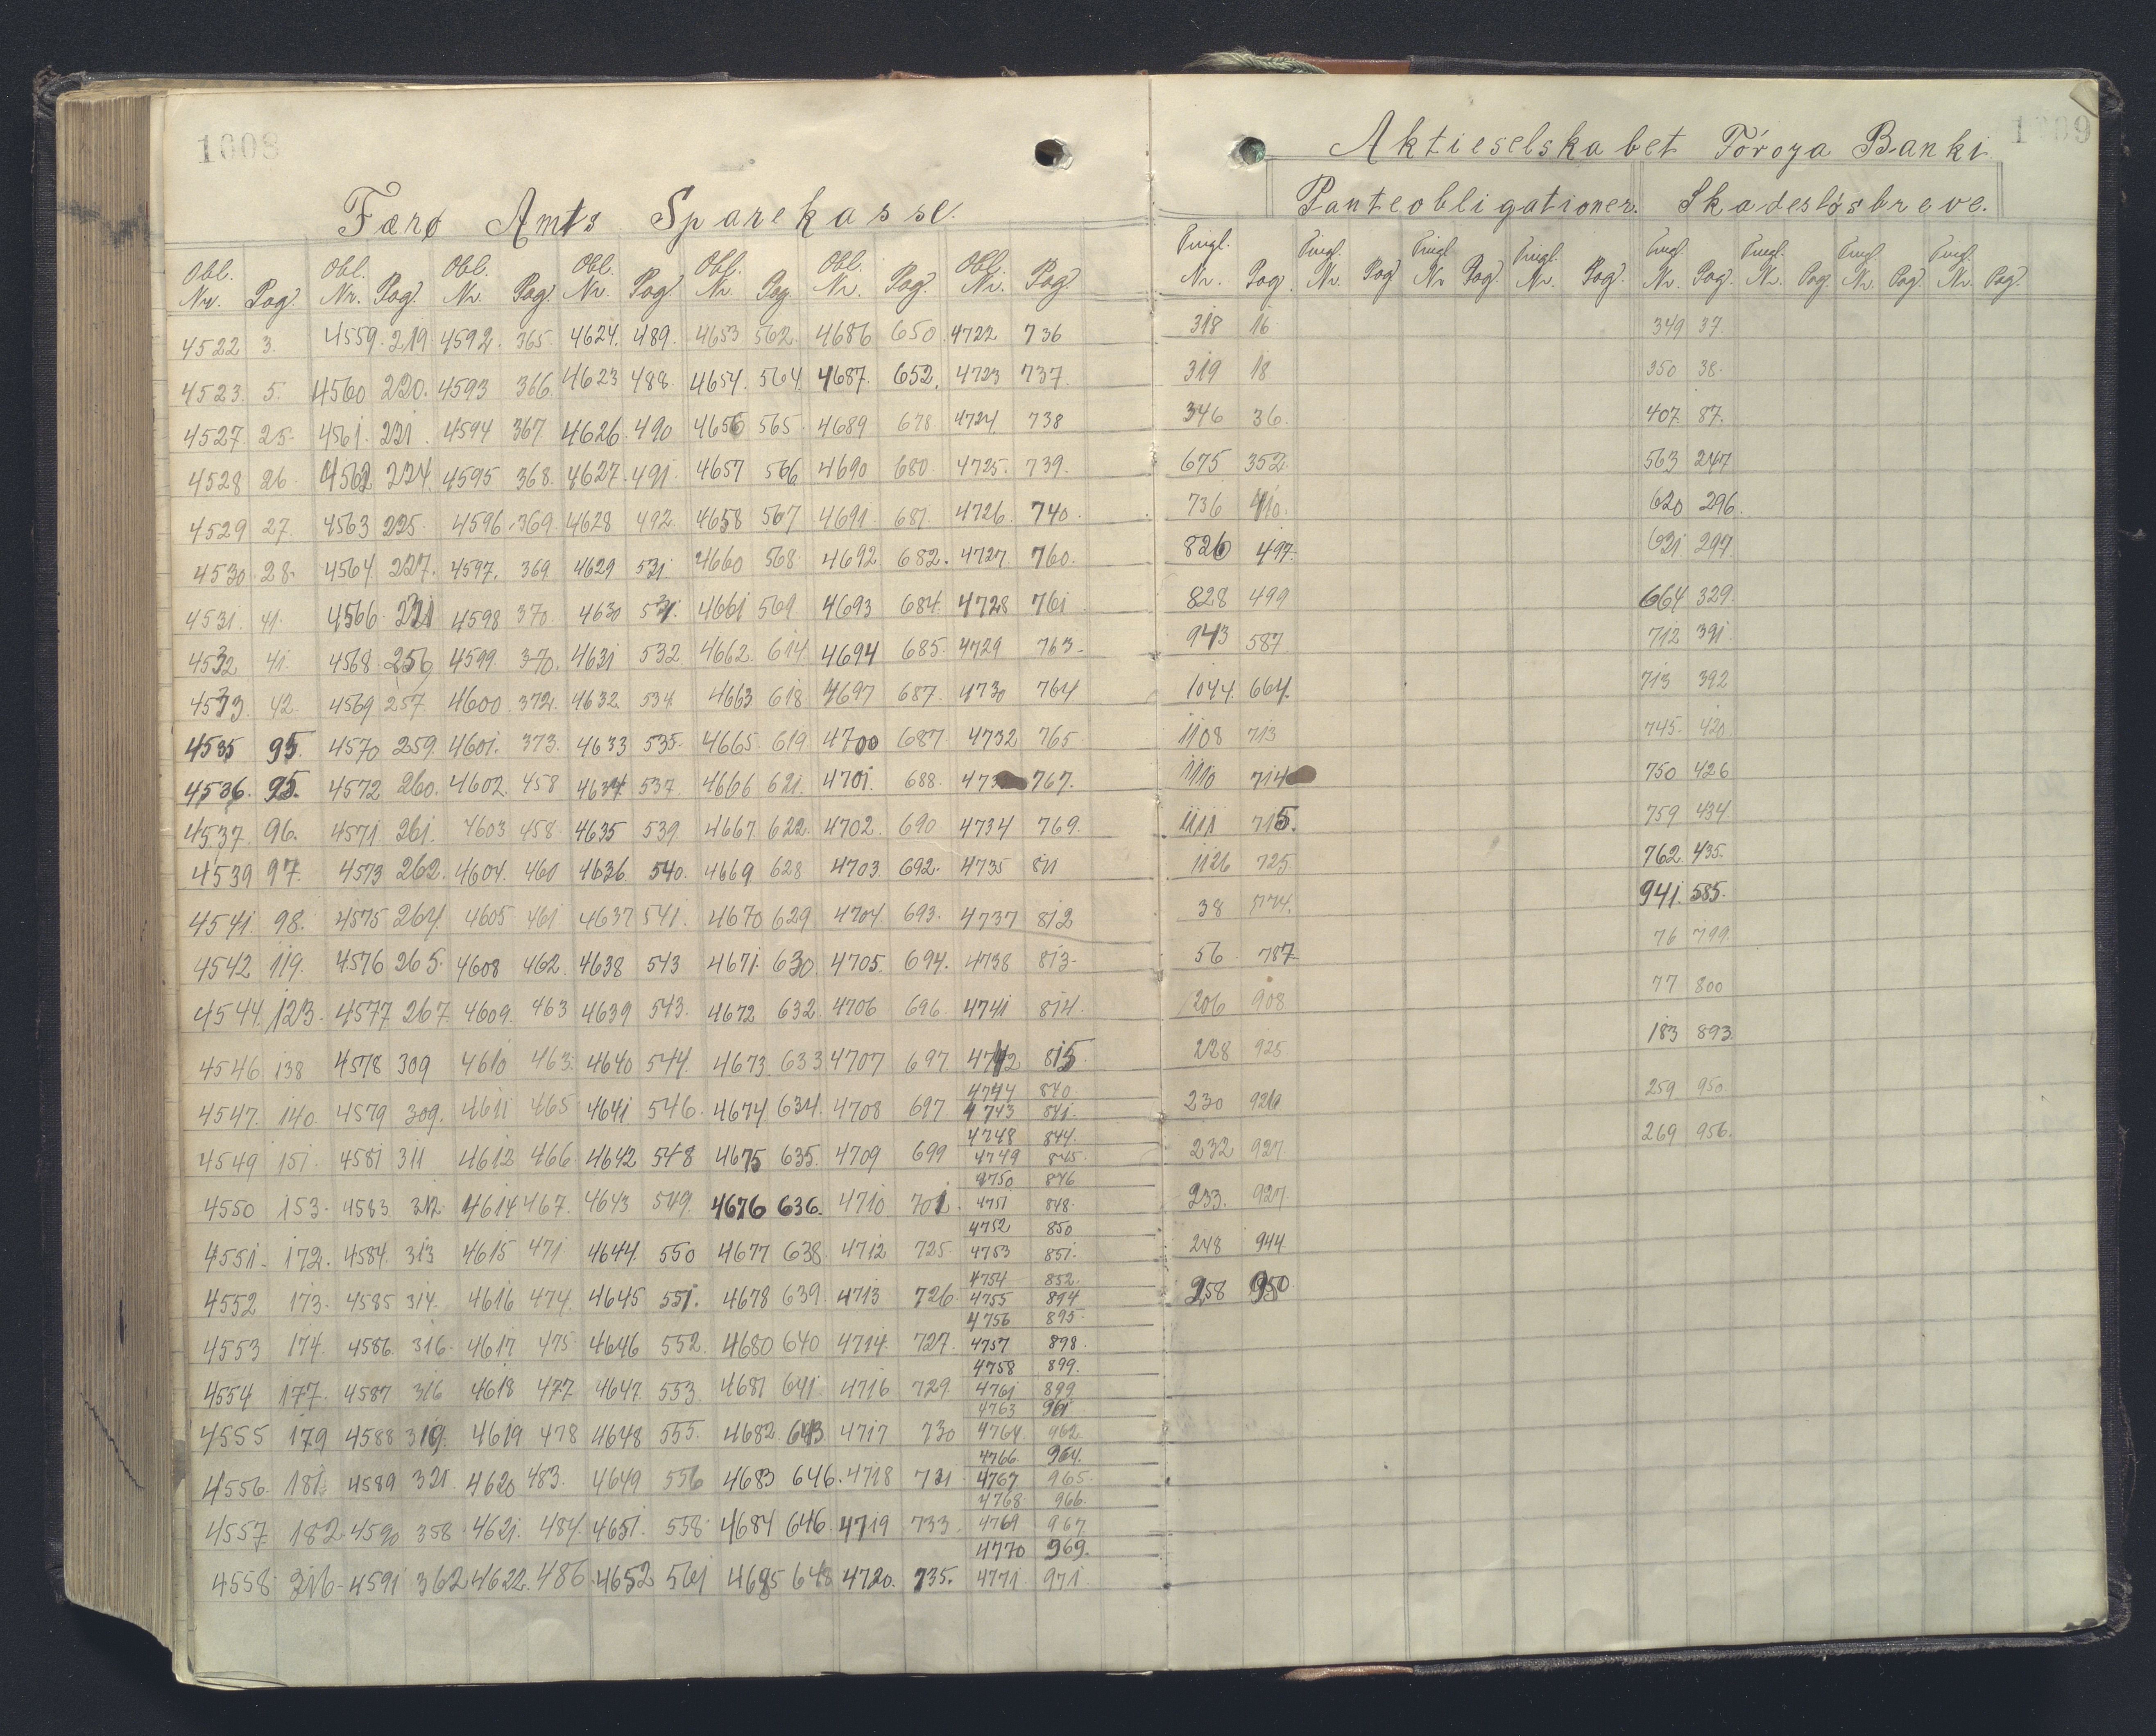 1008
Færø Amts Sparekasse.
Obl. Nr. Pag. Obl. Nr. Pag. Obl. Nr. Pag. Obl. Nr. Pag. Obl. Nr. Pag. Obl. Nr. Pag. Obl. Nr. Pag.
4522 3. 4559. 219. 4592. 365. 4624. 489. 4653 562. 4686 650. 4722 736
4523. 5. 4560 220. 4593 366. 4623 488. 4654. 564. 4687. 652. 4723 737.
4527. 25. 4561. 221. 4594 367. 4626. 490 4656 565. 4689 678. 4724. 738
4528 26. 4562 224. 4595 368. 4627. 491. 4657 566. 4690 680 4725. 739.
4529 27. 4563 225. 4596. 369. 4628 492. 4658 567 4691. 681. 4726. 740.
4530. 28. 4564. 227. 4597. 369. 4629 531. 4660 568. 4692 682. 4727. 760.
4531. 41. 4566. 4598 370. 4630 531. 4661 569 4693 684. 4728 761
4532 41. 4568 256 4599. 370. 4631 532. 4662. 614 4694 685. 4729 763.
4533. 42. 4569 257. 4600. 372. 4632. 534. 4663 618 4697 687. 4730 764
4535 95. 4570 259. 4601. 373. 4633 535. 4665. 619 4700 687 4732 765
4536. 95. 4572 260. 4602. 458 4634 537. 4666 621. 4701. 688. 767.
4537. 96. 4571 261. 4603 458. 4635 539. 4667 622. 4702. 690 4734 769.
4539 97. 4573 262. 4604. 460 4636 540. 4669 628 4703. 692. 4735 811
4541. 98. 4575 264. 4605 461 4637 541. 4670 629 4704. 693. 4737 812
4542 119. 4576 265. 4608 462. 4638 543 4671. 630. 4705. 694. 4738 813.
4544. 123. 4577 267. 4609. 463 4639 543. 4672 632. 4706 696. 4741 814.
4546 138 4578 309 4610 463. 4640 544. 4673. 633 4707 697 4742 815.
4744 840.
4547. 140. 4579 309. 4611 465. 4641 546. 4674 634. 4708 697 4743 841.
4748 844.
4549 151. 4581 311 4612 466. 4642 548 4675 635. 4709 699 4749 845.
4750 846
4550 153. 4583. 312. 4614 467. 4643 549. 4676 636. 4710 701. 4751 848.
4752 850
4551. 172. 4584. 313 4615 471 4644. 550 4677 638. 4712 725. 4753 851.
4754 852.
4552 173. 4585 314. 4616 474. 4645 551. 4678 639 4713 726. 4755 894
4756 895.
4553 174. 4586. 316. 4617 475. 4646 552. 4680 640 4714. 727. 4757 898.
4758 899.
4554 177. 4587 316 4618 477 4647. 553. 4681 641. 4716 729. 4761 899
4763 961
4555 179 4588 319. 4619 478 4648 555. 4682. 643 4717 730 4764 962.
4766 964.
4556. 181. 4589 321. 4620 483. 4649 556 4683 646. 4718 731 4767 965.
4768 966.
4557 182. 4590 358 4621. 484. 4651. 558. 4684 646. 4719 733. 4769 967
4770 969.
4558. 216. 4591 362 4622. 486. 4652 561 4685 648 4720. 735. 4771. 971.
1009
Aktieselskabet Føroya Banki.
Panteobligationer. Skadesløsbreve.
Tingl. Nr. Pag. Tingl. Nr. Pag. Tingl. Nr. Pag. Tingl. Nr. Pag. Tingl. Nr. Pag. Tingl. Nr. Pag. Tingl. Nr. Pag. Tingl. Nr. Pag.
318 16 349 37.
319 18 350 38.
346 36. 407. 87.
675 352. 563 247
736 410. 620 296.
826 497. 621. 297
828 499 664 329.
943 587. 712 391.
1044. 664. 713 392
1108 713 745. 420
1110 714 750 426
1111 715. 759 434
1126 725. 762. 435.
38 774. 941. 585.
56 787. 76 799.
206 908 77 800
228 925 183 893
230 926 259 950.
232 927. 269 956.
233. 927.
248 944
258 950.